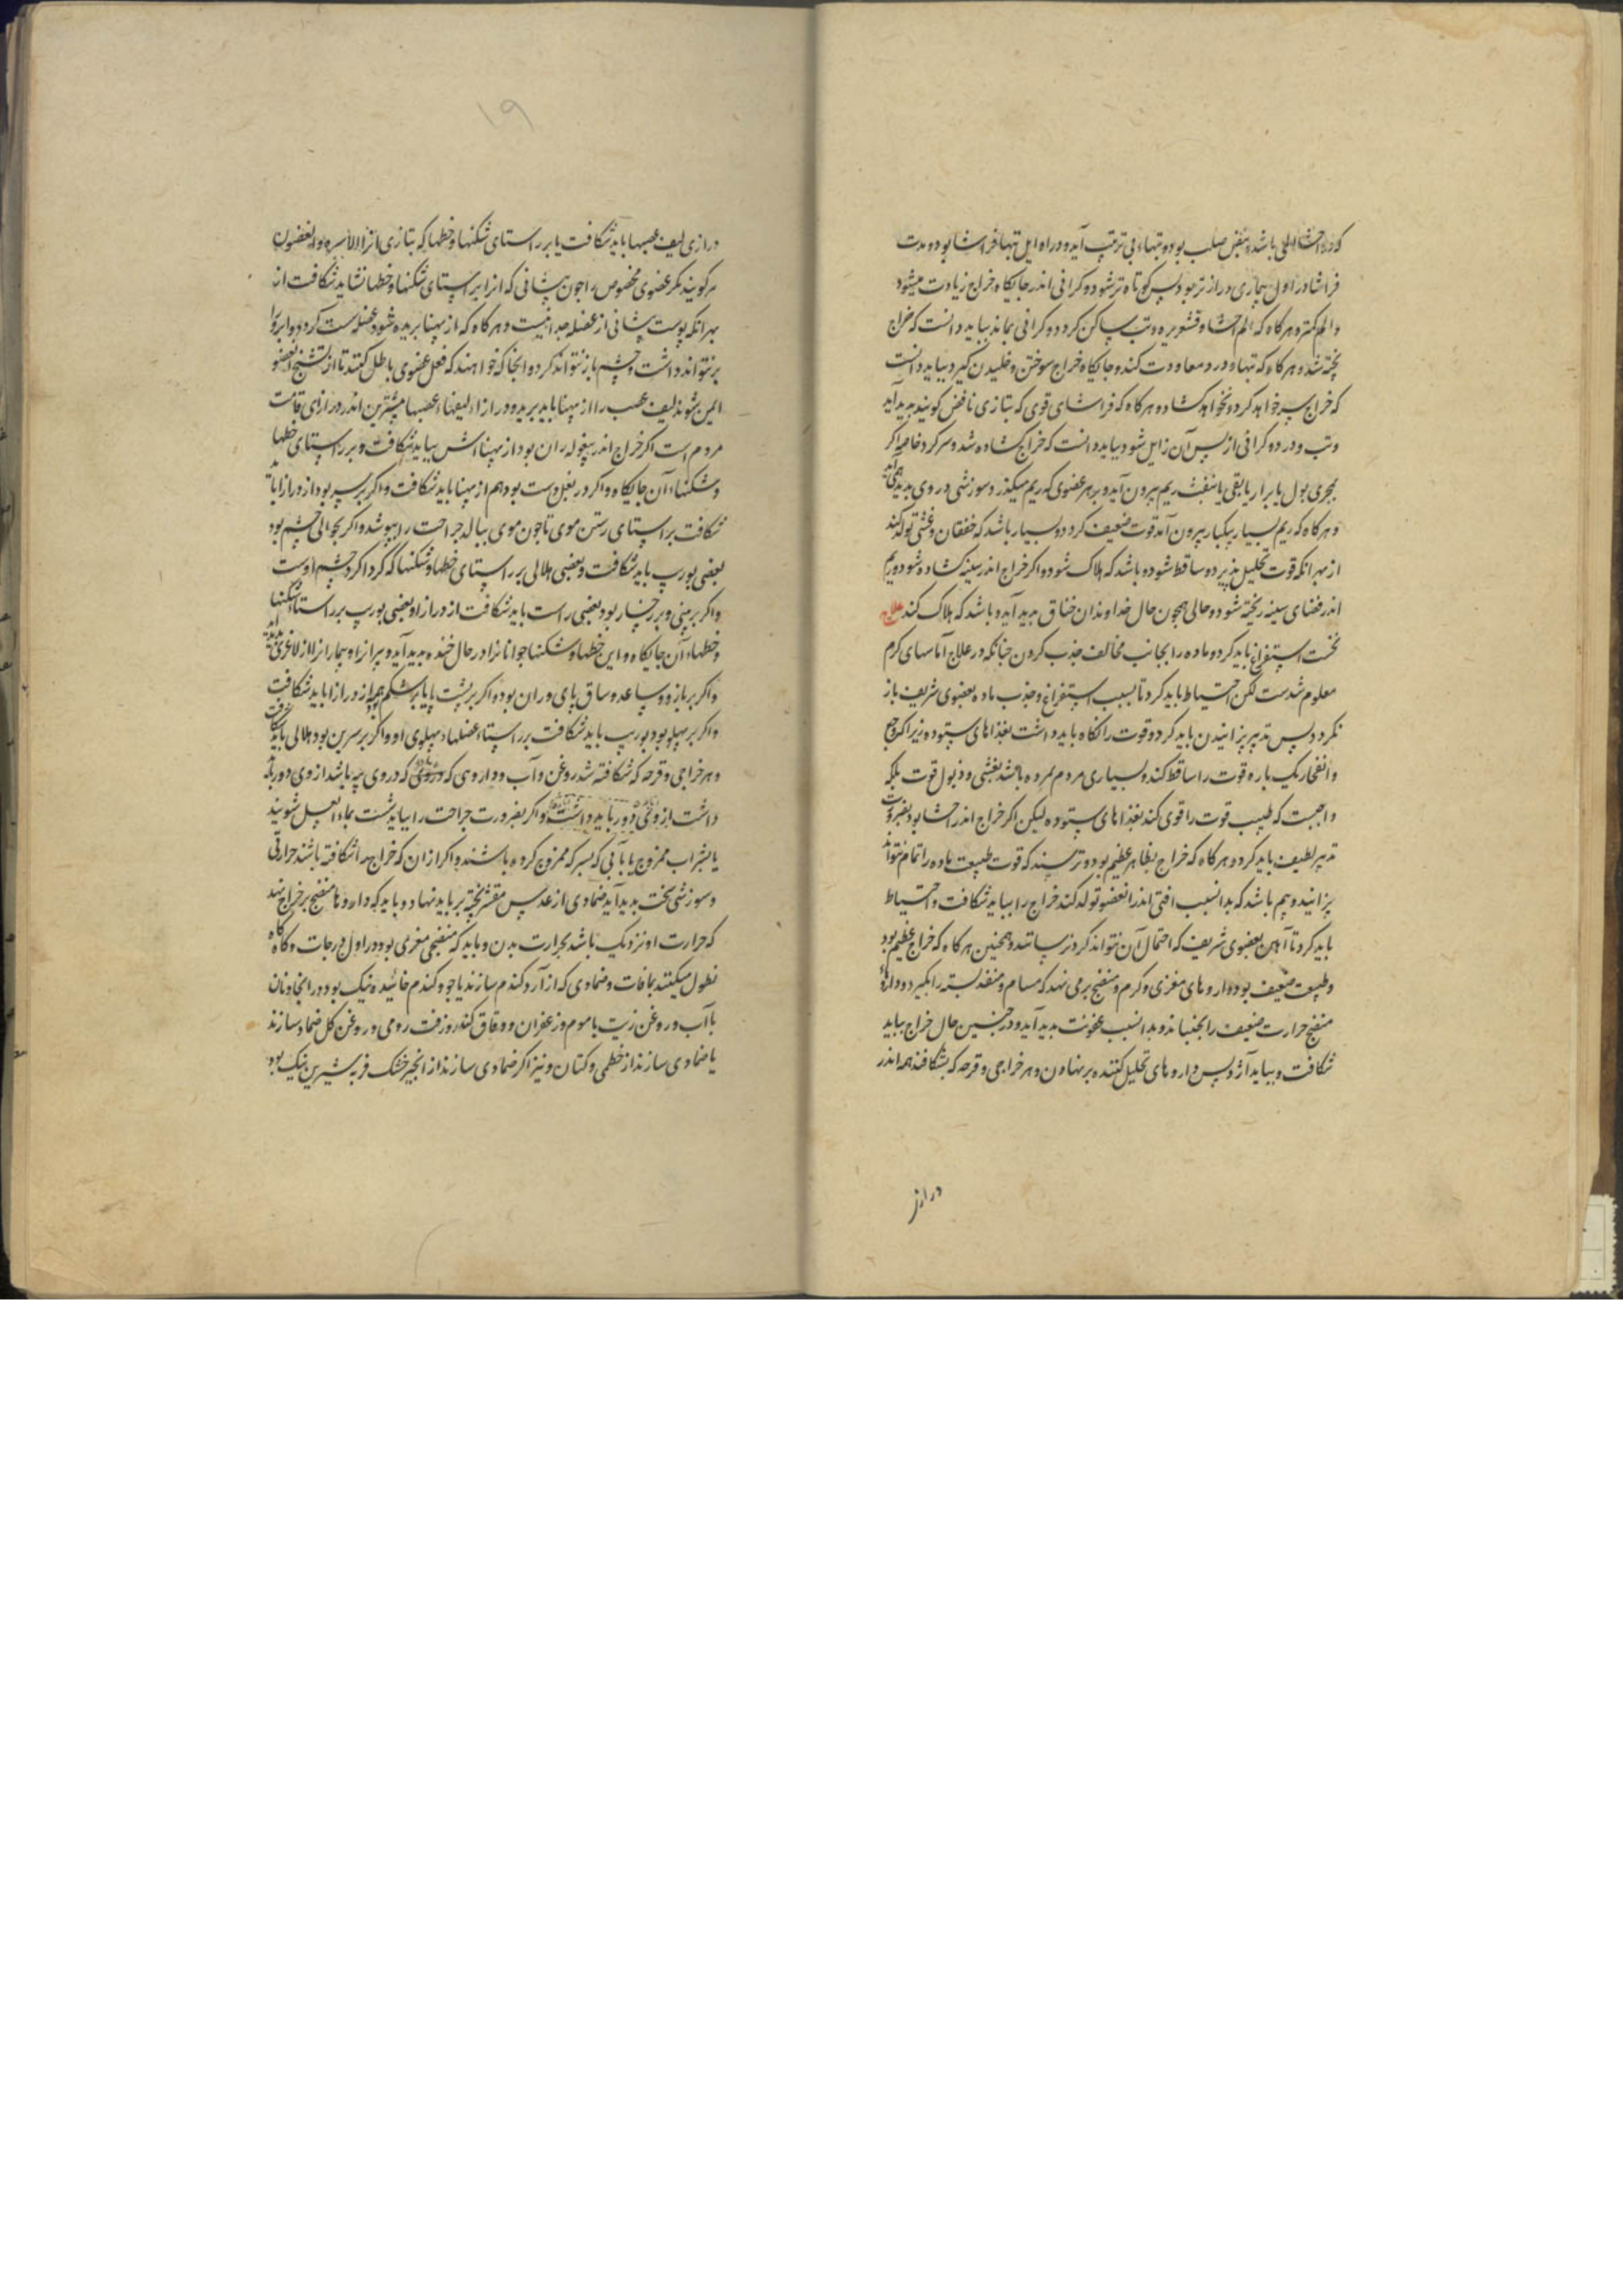 که در احشا المی باشد و نبض صلب بود و تبهاء بی ترتیب آید و در اوایل تبها فراشا بود و مدت
فراشا در اول بیماری درازتر بود پس کوتاه تر شود و کرانی اندر جایکاه خراج زیادت میشود
و الم کمتر و هرکاه که الم احشا و قشعریره و تب ساکن کردد و کرانی بماند بباید دانست که خراج
پخته شد و هرکاه که تبها و درد معاودت کند و جایکاه خراج سوختن و خلیدن کیرد بباید دانست
که خراج سر خواهد کرد و بخواهد کشاد و هرکاه که فراشای قوی که بتازی نافض کویند پدید آید
و تب و درد و کرانی از پس آن زایل شود بباید دانست که خراج کشاده شد و سر کرد خاصه اکر
بمجری بول یا براز یا بقی یا بنفث ریم بیرون آید و بر هر عضوی که ریم میکذرد سوزشی در وی پدید همی آید
و هرکاه که ریم بسیار بیکبار بیرون آید قوت ضعیف کردد و بسیار باشد که خفقان و غشی تولد کند
از بهر آنکه قوت تحلیل پذیرد و ساقط شود و باشد که هلاک شود و اکر خراج اندر سینه کشاده شود و ریم
اندر فضای سینه ریخته شود و حالی همچون حال خداوندان خناق پدید آید و باشد که هلاک کند علاج
نخست استفراغ باید کرد و ماده را بجانب مخالف جذب کردن چنانکه در علاج آماسهای کرم
معلوم شدست لکن احتیاط باید کرد تا بسبب استفراغ و جذب ماده بعضوی شریف باز
نکردد پس تدبیر پزانیدن باید کرد و قوت را نکاه باید داشت بغذاهای ستوده زیرا که وجع
و انفجار یک باره قوت را ساقط کند و بسیاری مردم بمرده باشند بغشی و ذبول قوت بلکه
واجبست که طبیب قوت را قوی کند بغذاهای ستوده لیکن اکر خراج اندر احشا بود بضرورت
تدبیر لطیف باید کرد و هرکاه که خراج بظاهر عظیم بود و ترسند که قوت طبیعت ماده را تمام نتواند
پزانید و بیم باشد که بدان سبب آفتی اندر آن عضو تولد کند خراج را بباید شکافت و احتیاط
باید کرد تا آهن بعضوی شریف که احتمال آن نتواند کرد نرسانند و همچنین هرکاه که خراج عظیم بود
و طبیعت ضعیف بود و داروهای مغری و کرم و منضج برمی نهد که مسام و منفذ بسته را بکیرد و داروهاء
منضج حرارت ضعیف را بجنباند و بدان سبب عفونت پدید آید و در چنین حال خراج بباید
شکافت و بباید آژد پس داروهای تحلیل کننده برنهادن و هر خراجی و قرحه که بشکافند همه اندر
دراز
۱۹
درازی لیف عصبها باید شکافت یا بر راستای شکنها و خطها که بتازی آنرا الاسره و الغضون
کویند مکر عضوی مخصوص را چون پیشانی که آنرا بر راستای شکنها و خطها نشاید شکافت از
بهر آنکه پوست پیشانی از عضله جدا نیست و هرکاه که از پهنا بریده شود عضله سست کردد و ابرو را
برنتواند داشت و چشم باز نتواند کرد و آنجا که خواهند که فعل عضوی باطل کنند تا از تشنج آن عضو
ایمن شوند لیف عصب را از پهنا باید برید و درازاء لیفهاء عصبها بیشترین اندر درازای قامت
مردم است اکر خراج اندر بیغوله ران بود از پهنا اش بباید شکافت و بر راستای خطها
و شکنهاء آن جایکاه و اکر در بغل دست بود هم از پهنا باید شکافت و اکر بر سر بود از درازا باید
شکافت بر راستای رستن موی تا چون موی ببالد جراحت را بپوشد و اکر بحوالی چشم بود
بعضی بوریب باید شکافت و بعضی هلالی بر راستای خطها و شکنها که کرداکرد چشم اوست
و اکر بر بینی و بر رخسار بود بعضی راست باید شکافت از درازا و بعضی بوریب بر راستاء شکنها
و خطهاء آن جایکاه و این خطها و شکنها جوانانرا در حال خنده پدید آید و پیرانرا و بیمارانرا از لاغری پدید آید
و اکر بر بازو و ساعد و ساق پای و ران بود و اکر بر پشت یا بر شکم همه از درازا باید شکافت
و اکر بر پهلو بود بوریب باید شکافت بر راستاء عضلهاء پهلوی او و اکر بر سرین بود هلالی باید شکافت
و هر خراجی و قرحه که شکافته شد روغن و آب و داروهی که در وی پیه باشد از وی دور باید
داشت و اکر بضرورت جراحت را بباید شست بماء العسل شویند
یا بشراب ممزوج یا بآبی که بسرکه ممزوج کرده باشند و اکر از آن که خراج را شکافته باشند حرارتی
و سوزشی سخت پدید آید ضمادی از عدس مقشر پخته بر باید نهاد و باید که داروها منضج بر خراج نهد
که حرارت او نزدیک باشد بحرارت بدن و باید که منضجی مغری بود در اول درجات و کاه کاه
نطول میکنند بمافات و ضمادی که از آرد کندم سازند یا جو و کندم خائیده نیک بود در اینجا و نان
با آب و روغن زیت یا موم و زعفران و دقاق کندر و زفت رومی و روغن کل ضماد سازند
یا ضمادی سازند از خطمی و کتان و نیز اکر ضمادی سازند از انجیر خشک فربه شیرین نیک بود